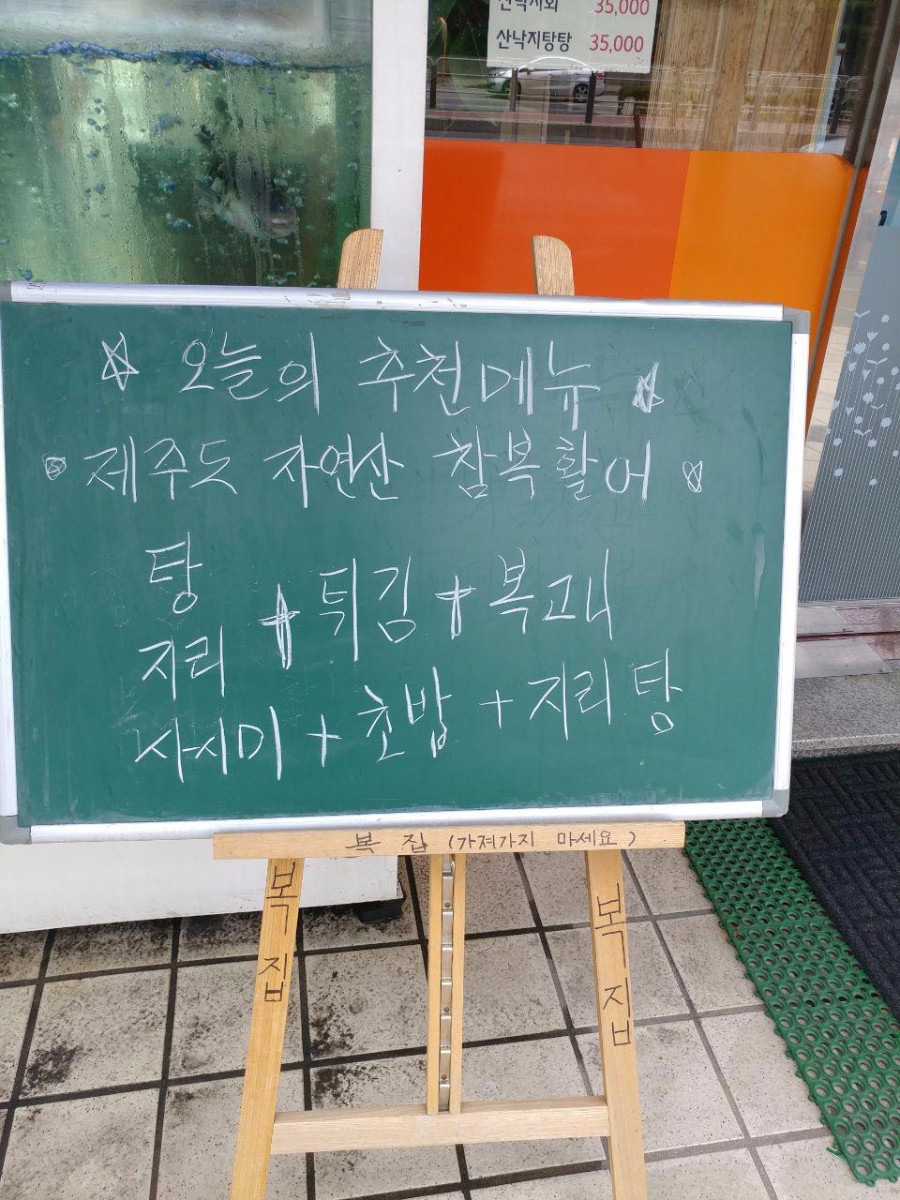 산낙지회 35,000
산낙지탕탕 35,000
☆ 오늘의 추천메뉴 ☆
제주도 자연산 참복활어
탕
지리 + 튀김 + 복고니
사시미 + 초밥 + 지리탕
복집 (가져가지 마세요)
복집
복집